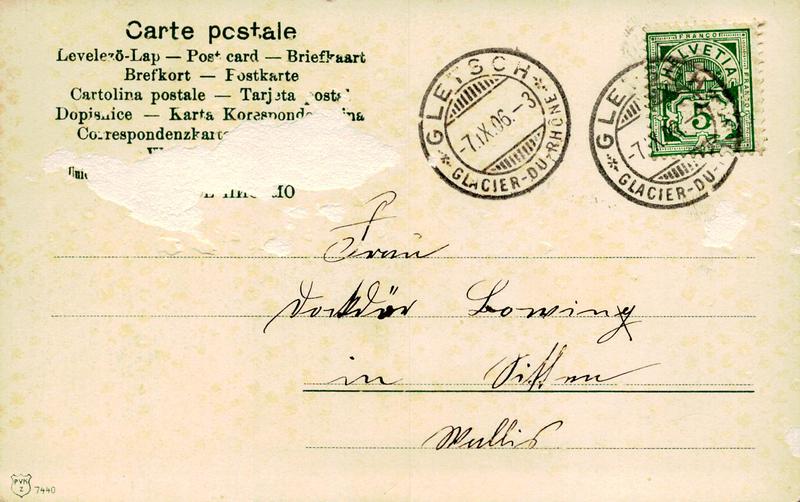 Carte postale
Levelező-Lap — Post card — Briefkaart
Brefkort — Postkarte
Cartolina postale — Tarjeta postal
Dopisnice — Karta Korespondencyjna
Correspondenzkarte
GLETSCH
-7.IX.06.-3
GLACIER-DU-RHÔNE
FRANCO
HELVETIA
FRANCO
5
FRANCO
GLE
-7.IX
GLACIER-DU-R
Frau
Docktór Bowing
in Sitten
Wallis
PVK
Z
7440